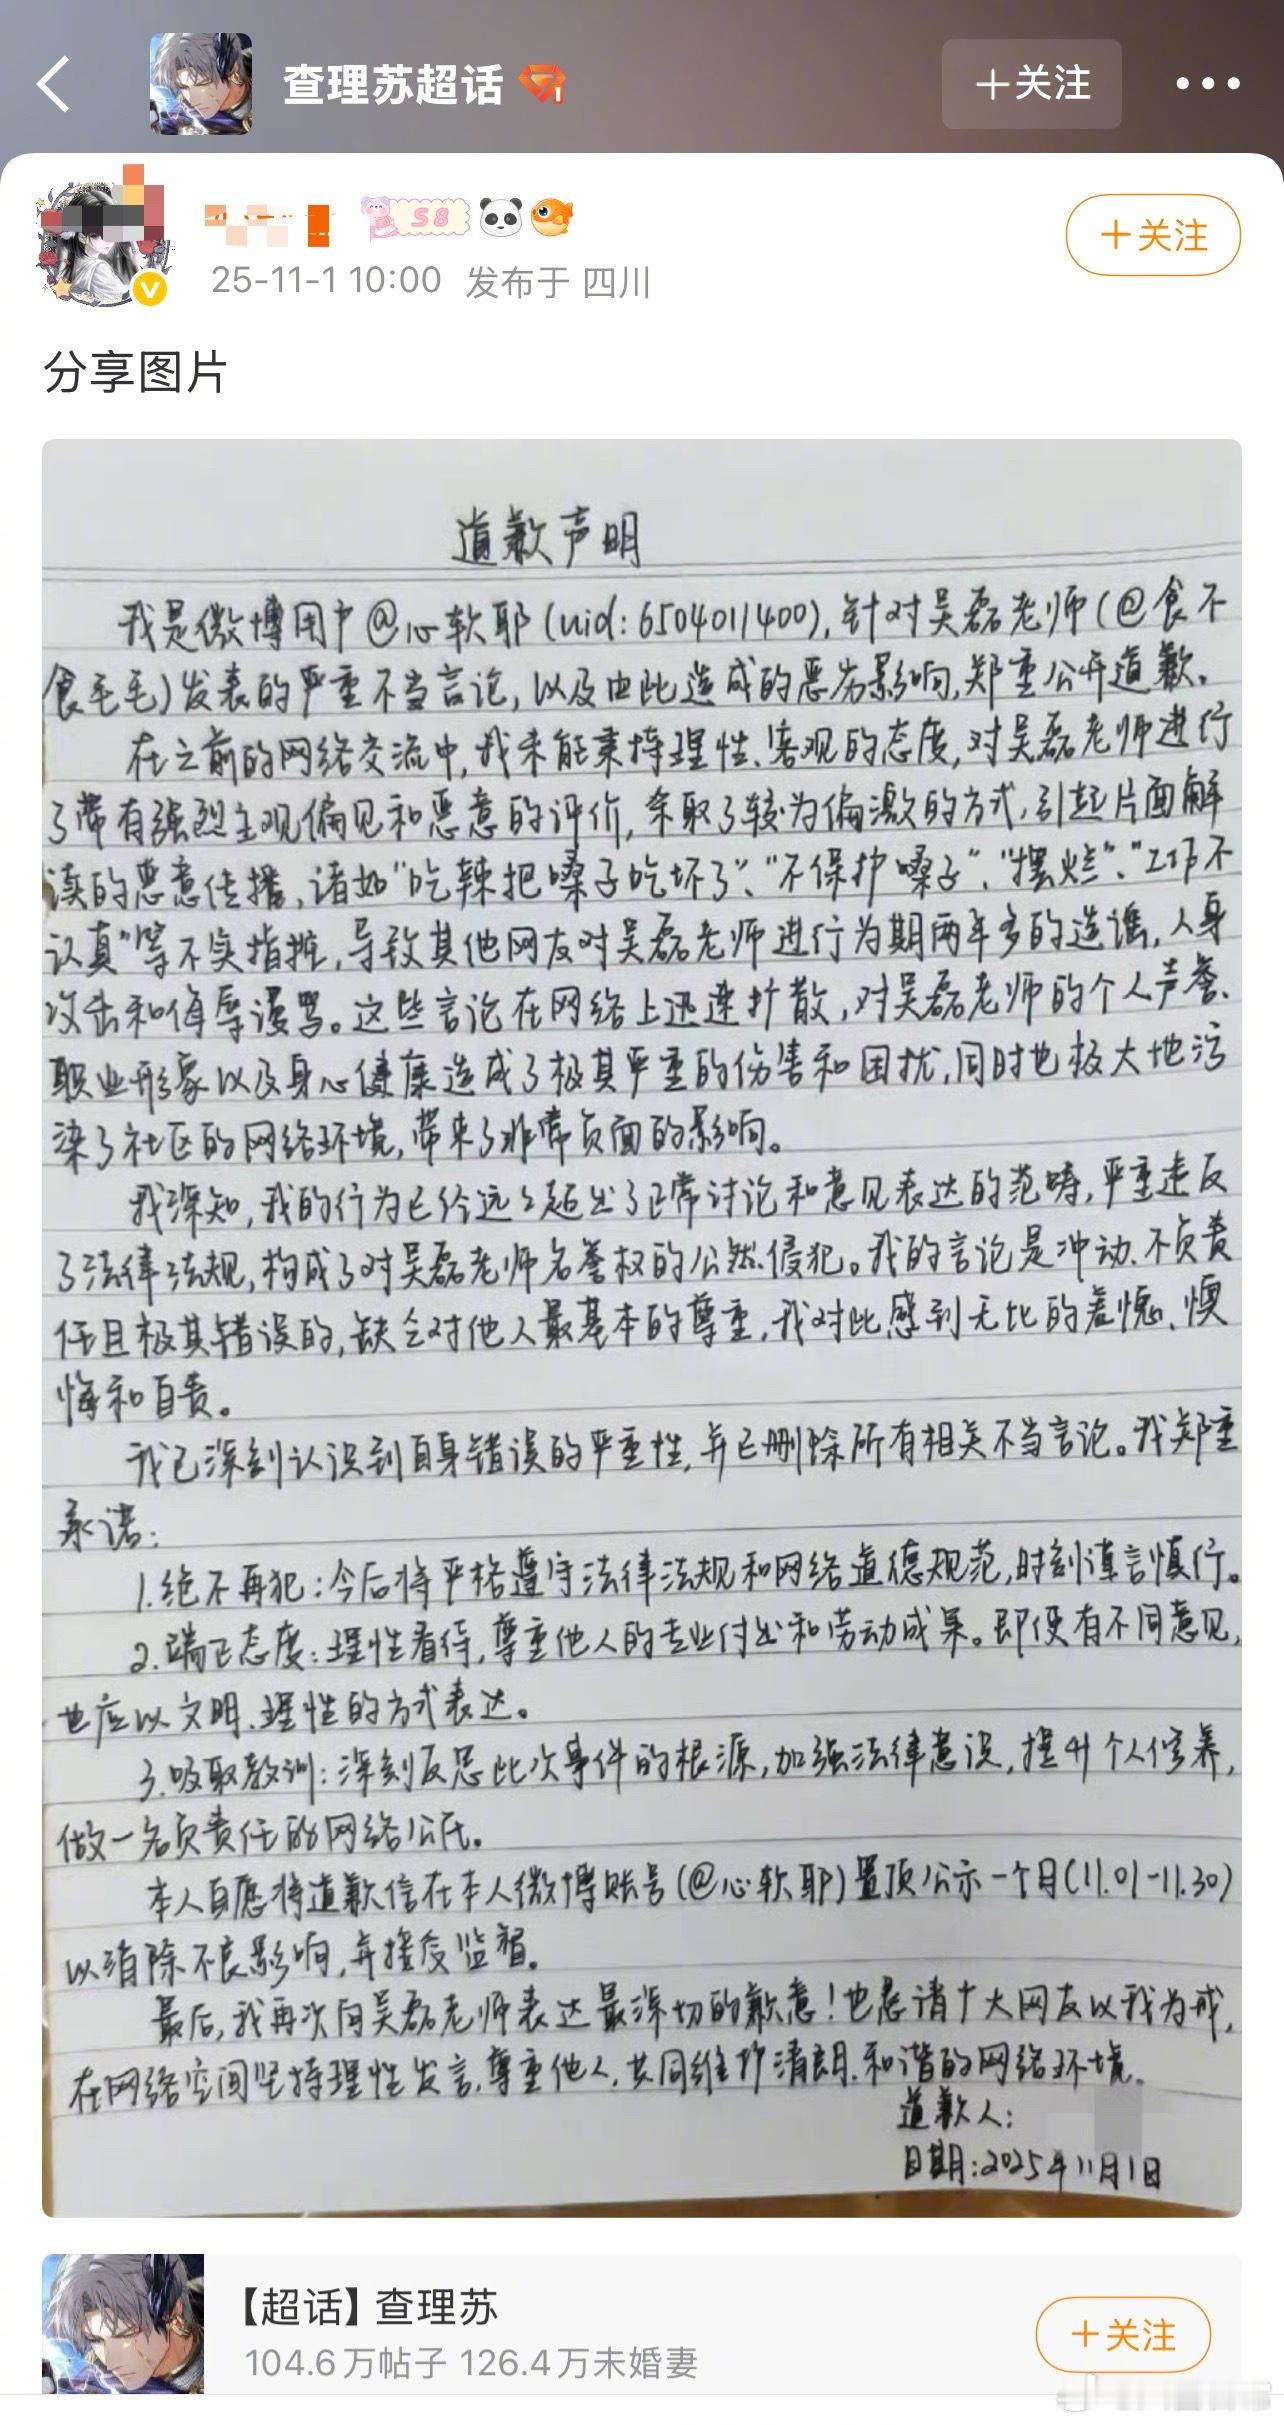 查理苏超话
1
+关注
S8
25-11-1 10:00 发布于 四川
+关注
分享图片
道歉声明
我是微博用户@心软耶(uid:6504011400),针对吴磊老师(@食不
食毛毛)发表的严重不当言论,以及由此造成的恶劣影响,郑重公开道歉。
在之前的网络交流中,我未能秉持理性、客观的态度,对吴磊老师进行
了带有强烈主观偏见和恶意的评价,采取了较为偏激的方式,引起片面解
读的恶意传播,诸如“吃辣把嗓子吃坏了”、“不保护嗓子”、“摆烂”、“工作不
认真”等不实指控,导致其他网友对吴磊老师进行为期两年多的造谣,人身
攻击和侮辱谩骂。这些言论在网络上迅速扩散,对吴磊老师的个人声誉、
职业形象以及身心健康造成了极其严重的伤害和困扰,同时也极大地污
染了社区的网络环境,带来了非常负面的影响。
我深知,我的行为已经远远超出了正常讨论和意见表达的范畴,严重违反
了法律法规,构成了对吴磊老师名誉权的公然侵犯。我的言论是冲动、不负责
任且极其错误的,缺乏对他人最基本的尊重,我对此感到无比的羞愧、懊
悔和自责。
我已深刻认识到自身错误的严重性,并已删除所有相关不当言论。我郑重
承诺:
1.绝不再犯:今后将严格遵守法律法规和网络道德规范,时刻谨言慎行。
2.端正态度:理性看待,尊重他人的专业付出和劳动成果。即便有不同意见,
也应以文明、理性的方式表达。
3.吸取教训:深刻反思此次事件的根源,加强法律意识,提升个人修养,
做一名负责任的网络公民。
本人自愿将道歉信在本人微博账号(@心软耶)置顶公示一个月(11.01-11.30)
以消除不良影响,并接受监督。
最后,我再次向吴磊老师表达最深切的歉意!也恳请广大网友以我为戒,
在网络空间坚持理性发言,尊重他人,共同维护清朗、和谐的网络环境。
道歉人:
日期:2025年11月1日
【超话】查理苏
104.6万帖子 126.4万未婚妻
+关注